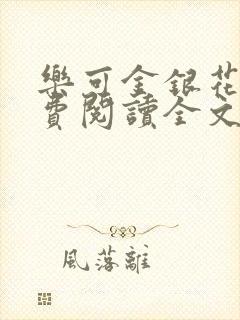 樂可金銀花
費閱讀全文
風落離